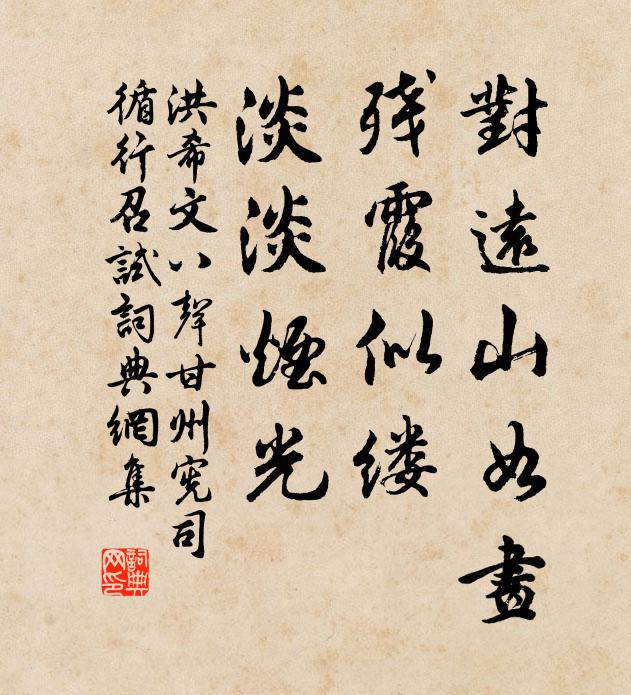 對遠山如畫
残霞似缕
淡淡煙光
洪希文八聲甘州憲司
循行召試詞典網集
詞典網印